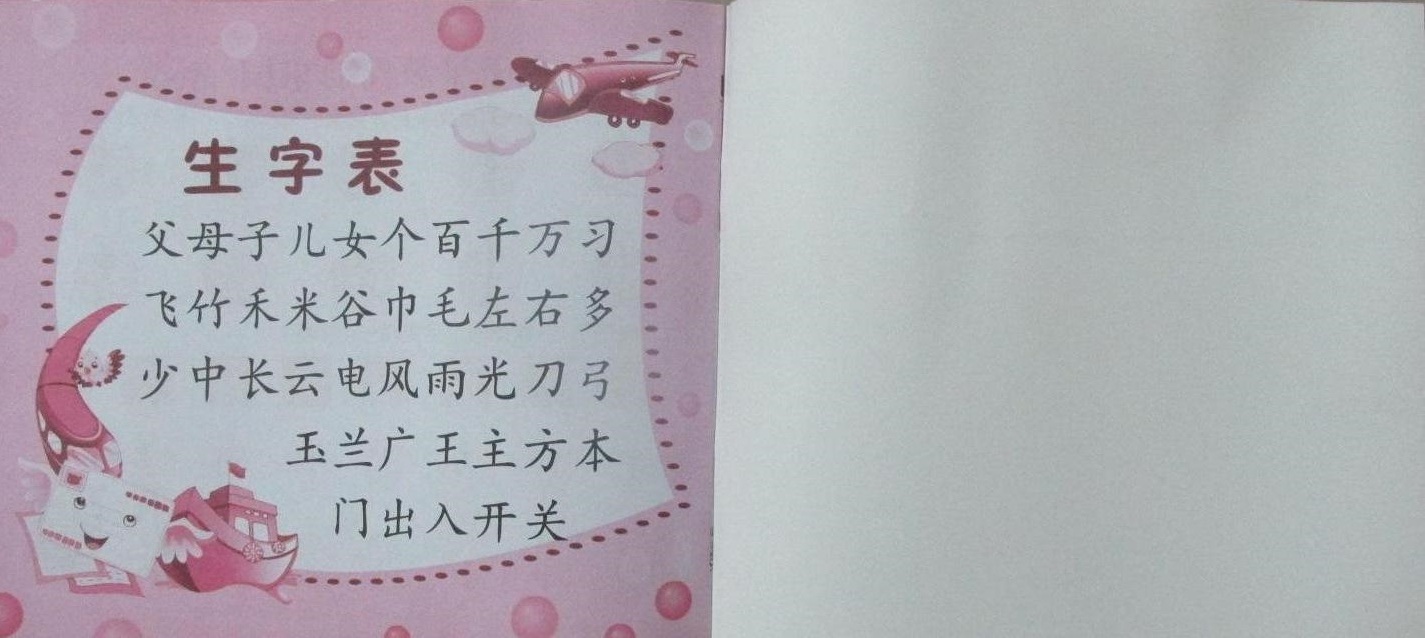 生字表
父母子儿女个百千万习
飞竹禾米谷巾毛左右多
少中长云电风雨光刀弓
玉兰广王主方本
门出入开关